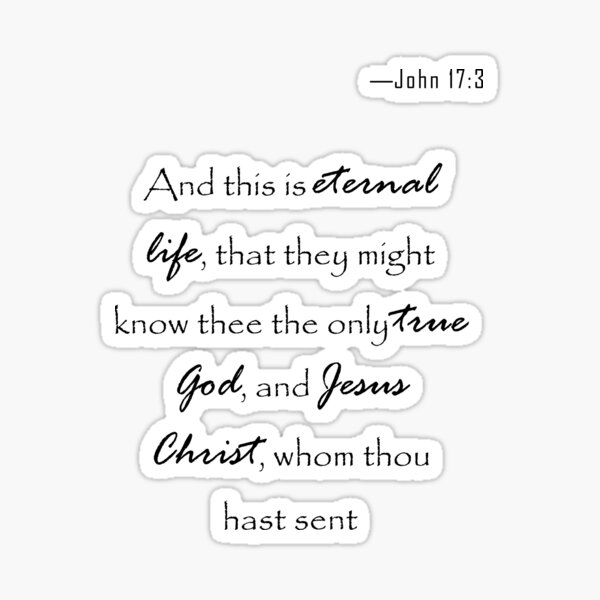 —John 17:3
And this is eternal
life, that they might
know thee the only true
God, and Jesus
Christ, whom thou
hast sent